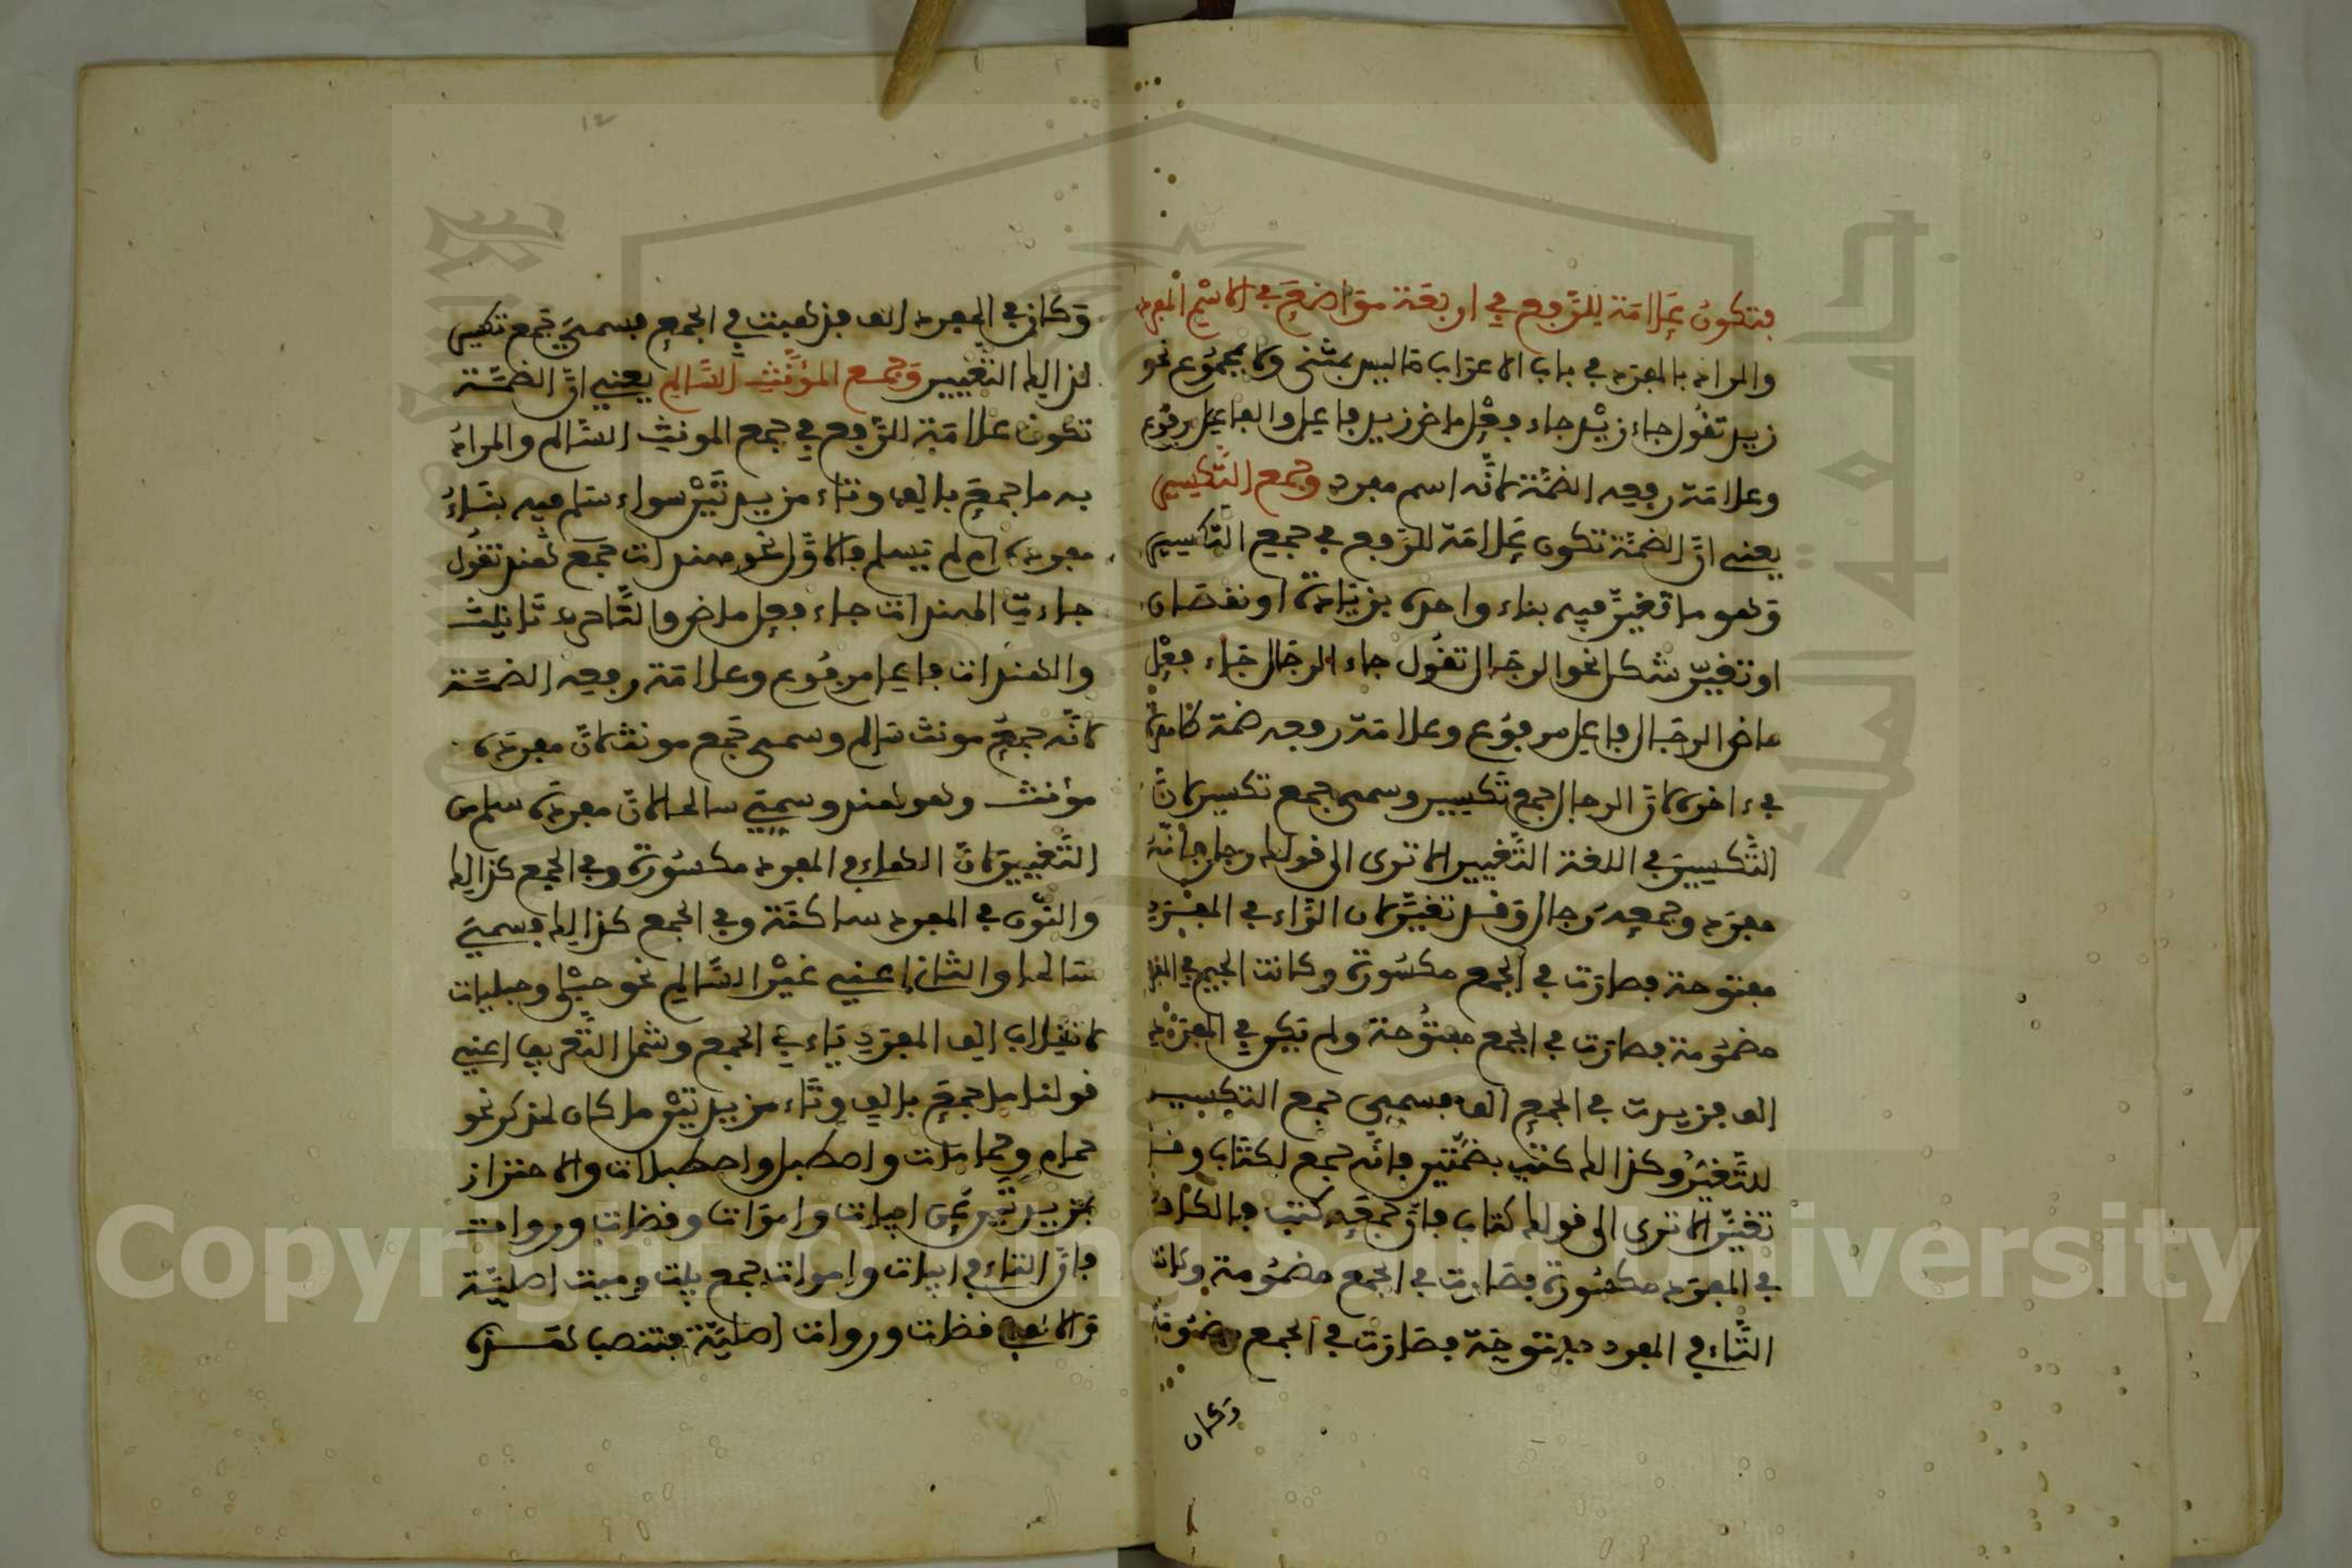 فتكون علامة للرفع في اربعة مواضع في الاسم المفرد
والمراد بالمفرد في باب الاعراب ما ليس بمثنى ولا بمجموع نحو
زيد تقول جاء زيد جاء فعل ماض زيد فاعل والفاعل مرفوع
وعلامة رفعه الضمة لانه اسم مفرد وجمع التكسير
يعني ان الضمة تكون علامة للرفع في جمع التكسير
وهو ما تغير فيه بناء واحده بزيادة او نقصان
او تغير شكل نحو الرجال تقول جاء الرجال جاء فعل
ماض الرجال فاعل مرفوع وعلامة رفعه ضمة ظاهرة
في ءاخره لان الرجال جمع تكسير وسمي جمع تكسير لان
التكسير في اللغة التغيير الا ترى الى قولك رجل فانه
مفرد وجمعه رجال وقد تغير لان الراء في المفرد
مفتوحة فصارت في الجمع مكسورة وكانت الجيم في المفرد
مضمومة فصارت في الجمع مفتوحة ولم تكن في المفرد
الف فزيدت في الجمع الف فسمي جمع التكسير
للتغير وكذالك كتب بضمتين فانه جمع لكتاب وقد
تغير الا ترى الى قولك كتاب فان جمعه كتب فالكاف
في المفرد مكسورة فصارت في الجمع مضمومة وكانت
التاء في المفرد مفتوحة فصارت في الجمع مضمومة
وكان
١٢
وكان في المفرد الف فذهبت في الجمع فسمي جمع تكسير
لذالك التغيير وجمع المؤنث السالم يعني ان الضمة
تكون علامة للرفع في جمع المونث السالم والمراد
به ما جمع بالف وتاء مزيدتين سواء سلم فيه بناء
مفرده ام لم يسلم فالاول نحو هندات جمع لهند تقول
جاءت الهندات جاء فعل ماض والتا حرف تانيث
والهندات فاعل مرفوع وعلامة رفعه الضمة
لانه جمع مونث سالم وسمي جمع مونث لان مفرده
مؤنث وهو هند وسمي سالما لان مفرده سلم من
التغيير لان الهاء في المفرد مكسورة وفي الجمع كذالك
والنون في المفرد ساكنة وفي الجمع كذالك فسمي
سالما والثاني اعني غير السالم نحو حبلى وحبليات
لانقلاب الف المفرد ياء في الجمع وشمل التعريف اعني
قولنا ما جمع بالف وتاء مزيدتين ما كان لمذكر نحو
حمام وحمامات واصطبل واصطبلات والاحتراز
بمزيدتين عن ابيات واموات وقضات وروات
فان التاء في ابيات واموات جمع بيت وميت اصلية
والالف في قضات وروات اصلية فتنصب هذه